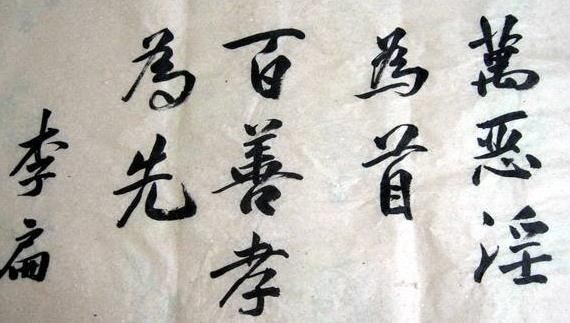 萬恶淫
為首
百善孝
為先
李扁